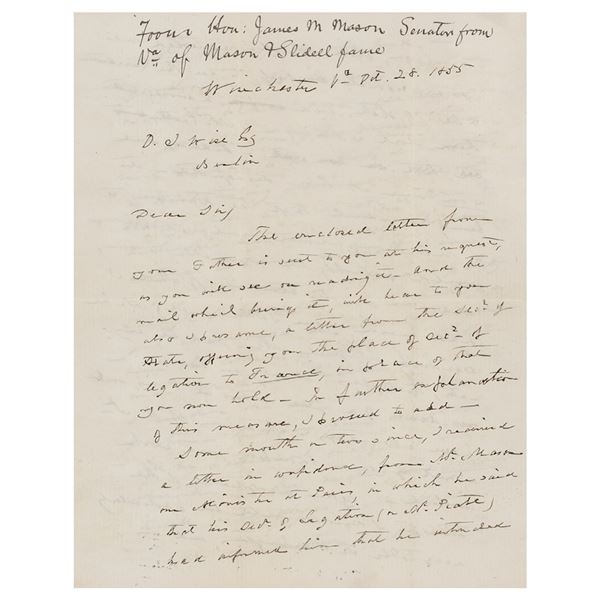 From Hon: James M Mason Senator from
Va of Mason & Slidell fame
Winchester Va Oct. 28. 1855
D. J. Wise Esq
Berlin
Dear Sir,
The enclosed letter from
your Father is sent to you at his request,
as you will see on reading it - and the
mail which brings it, will bear to you
also I presume, a letter from the Secy. of
State, offering you the place of Secy. of
legation to France, in place of that
you now hold - In further explanation
of this measure, I proceed to add -
Some month or two since, I received
a letter in confidence, from Mr. Mason
our Minister at Paris, in which he said
that his Secy. of Legation (or Mr. Piatt)
had informed him that he intended